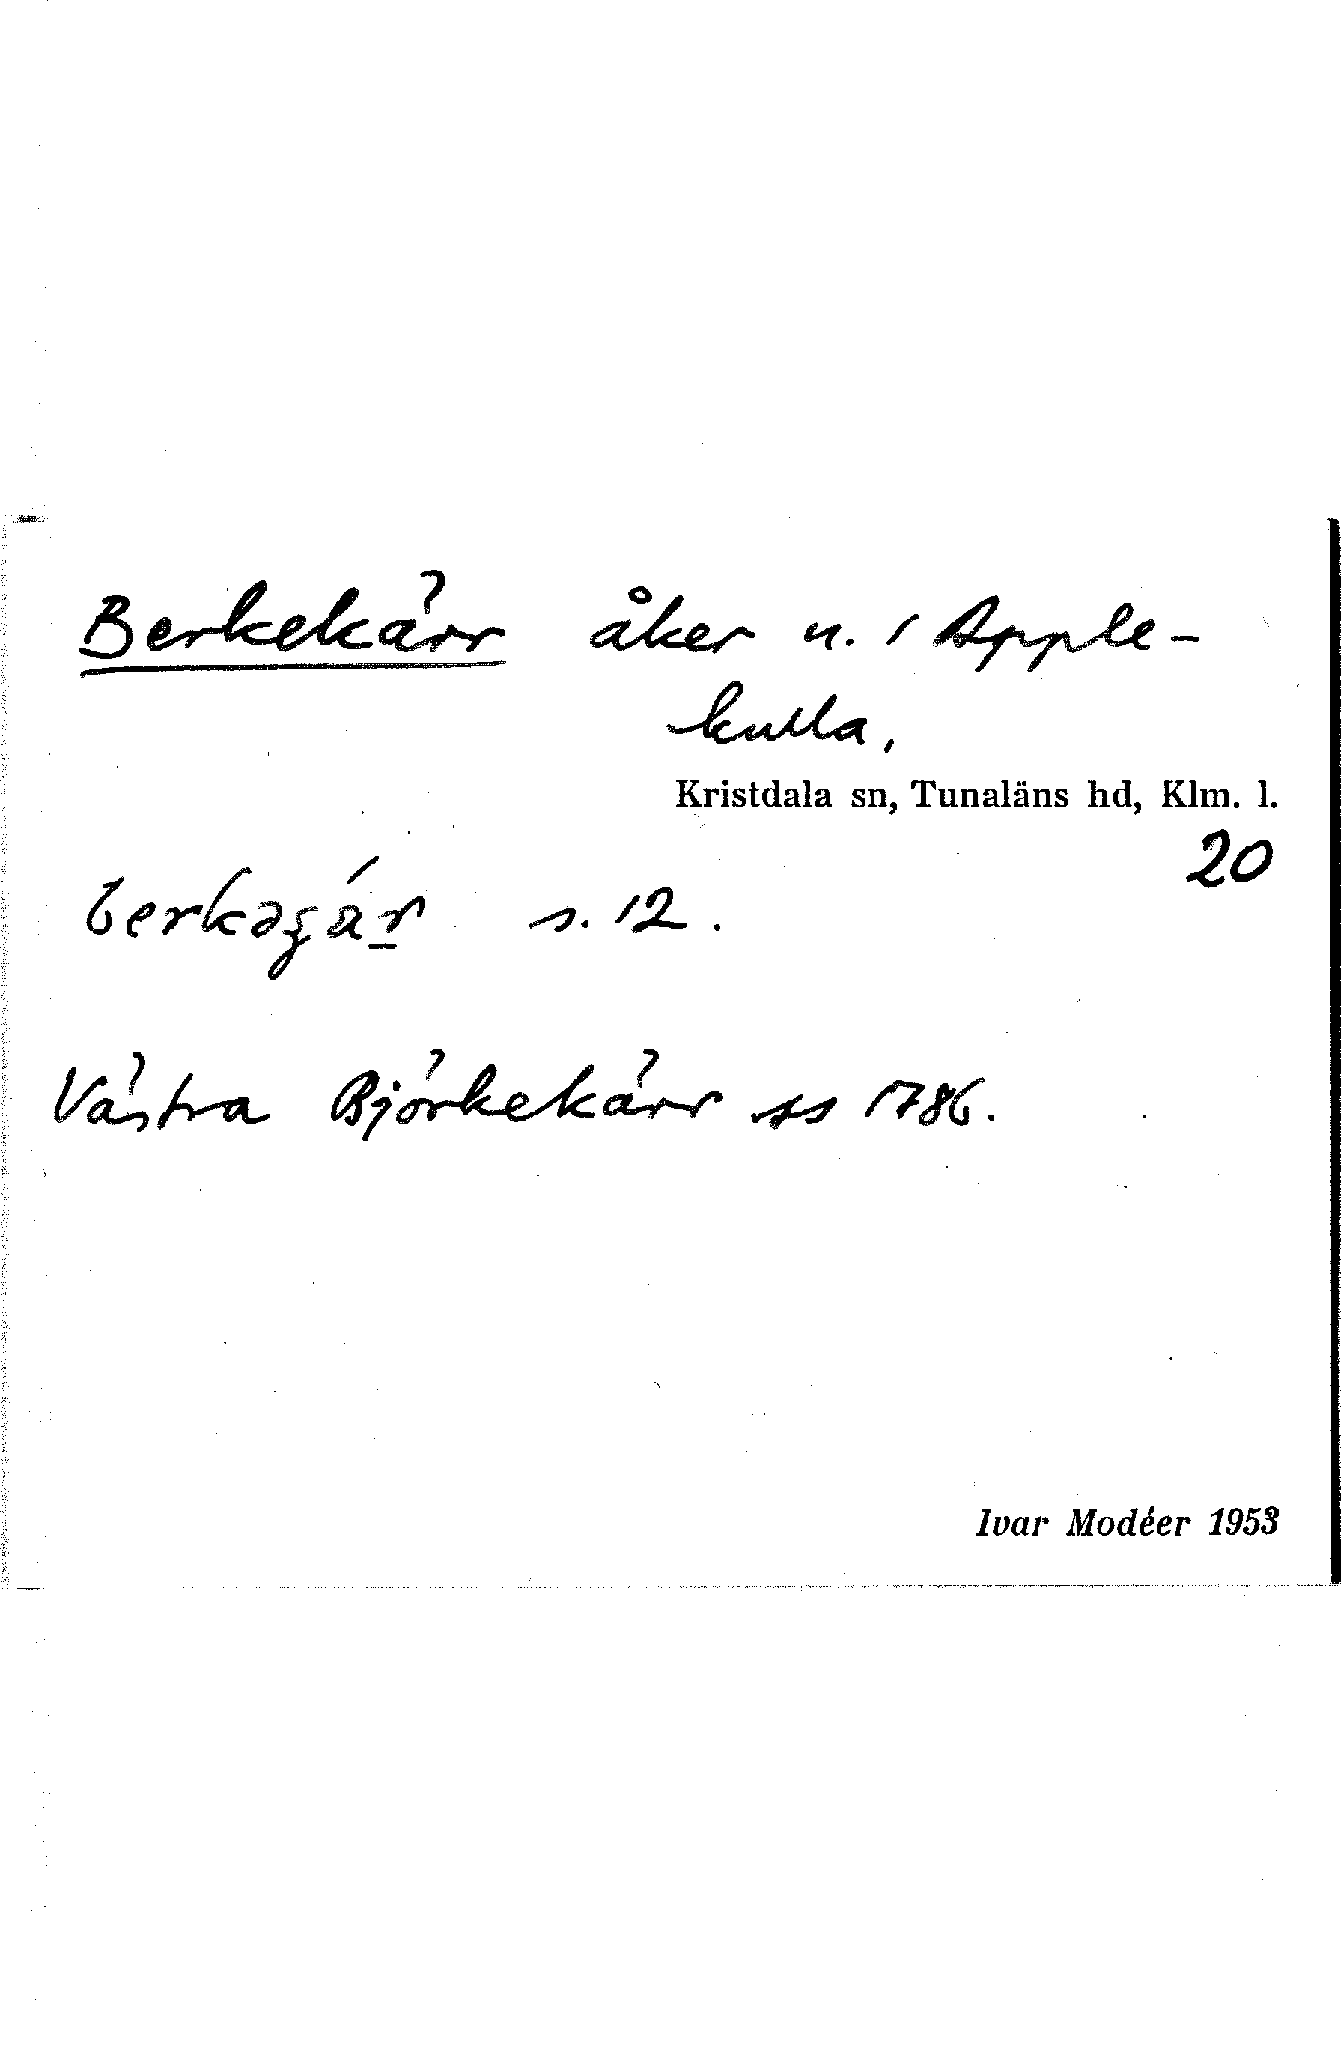 Berkekärr åker n. / Apple-
kulla,
Kristdala sn, Tunaläns hd, Klm. l.
20
s. 12.
Västra Björkekärr ss 1786.
Ivar Modéer 1953